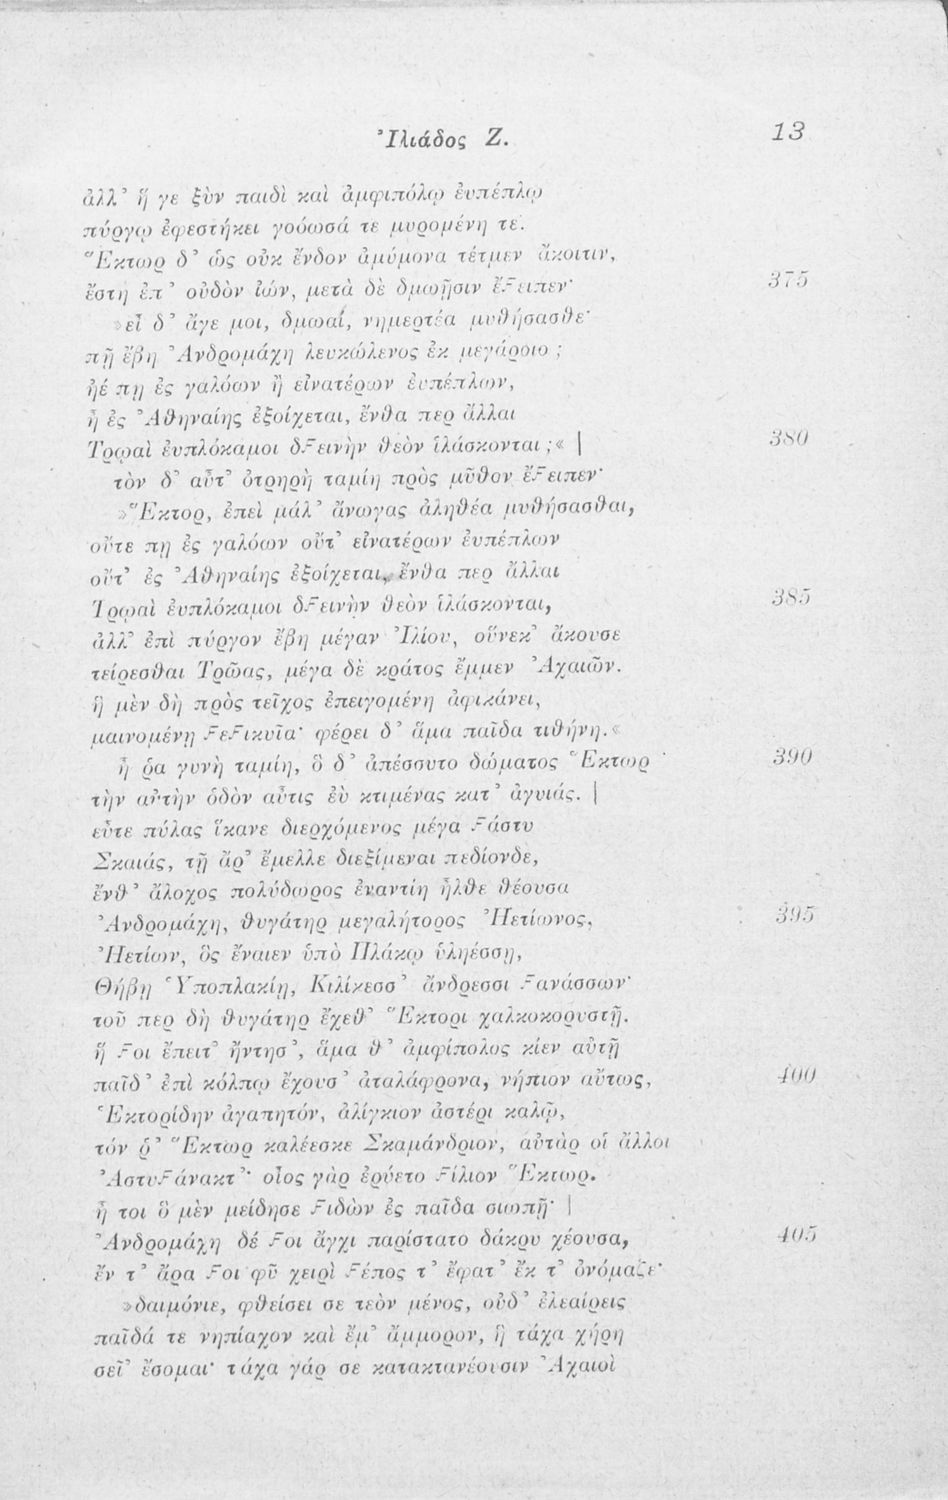 Ἰλιάδος Ζ. 13
ἀλλ᾽ ἥ γε ξὺν παιδὶ καὶ ἀμφιπόλῳ ἐυπέπλῳ
πύργῳ ἐφεστήκει γοόωσά τε μυρομένη τε.
Ἕκτωρ δ᾽ ὡς οὐκ ἔνδον ἀμύμονα τέτμεν ἄκοιτιν,
ἔστη ἐπ᾽ οὐδὸν ἰών, μετὰ δὲ δμωῇσιν ἔϝειπεν· 375
»εἰ δ᾽ ἄγε μοι, δμωαί, νημερτέα μυθήσασθε·
πῇ ἔβη Ἀνδρομάχη λευκώλενος ἐκ μεγάροιο ;
ἠέ πῃ ἐς γαλόων ἢ εἰνατέρων ἐυπέπλων,
ἦ ἐς Ἀθηναίης ἐξοίχεται, ἔνθα περ ἄλλαι
Τρῳαὶ ἐυπλόκαμοι δϝεινὴν θεὸν ἱλάσκονται ;« | 380
τὸν δ᾽ αὖτ᾽ ὀτρηρὴ ταμίη πρὸς μῦθον ἔϝειπεν·
»Ἕκτορ, ἐπεὶ μάλ᾽ ἄνωγας ἀληθέα μυθήσασθαι,
οὔτε πῃ ἐς γαλόων οὔτ᾽ εἰνατέρων ἐυπέπλων
οὔτ᾽ ἐς Ἀθηναίης ἐξοίχεται, ἔνθα περ ἄλλαι
Τρῳαὶ ἐυπλόκαμοι δϝεινὴν θεὸν ἱλάσκονται, 385
ἀλλ᾽ ἐπὶ πύργον ἔβη μέγαν Ἰλίου, οὕνεκ᾽ ἄκουσε
τείρεσθαι Τρῶας, μέγα δὲ κράτος ἔμμεν Ἀχαιῶν.
ἣ μὲν δὴ πρὸς τεῖχος ἐπειγομένη ἀφικάνει,
μαινομένῃ ϝεϝικυῖα· φέρει δ᾽ ἅμα παῖδα τιθήνη.«
ἦ ῥα γυνὴ ταμίη, ὃ δ᾽ ἀπέσσυτο δώματος Ἕκτωρ 390
τὴν αὐτὴν ὁδὸν αὖτις ἐὺ κτιμένας κατ᾽ ἀγυιάς. |
εὖτε πύλας ἵκανε διερχόμενος μέγα ϝάστυ
Σκαιάς, τῇ ἄρ᾽ ἔμελλε διεξίμεναι πεδίονδε,
ἔνθ᾽ ἄλοχος πολύδωρος ἐναντίη ἦλθε θέουσα
Ἀνδρομάχη, θυγάτηρ μεγαλήτορος Ἠετίωνος, 395
Ἠετίων, ὃς ἔναιεν ὑπὸ Πλάκῳ ὑληέσσῃ,
Θήβῃ Ὑποπλακίῃ, Κιλίκεσσ᾽ ἄνδρεσσι ϝανάσσων·
τοῦ περ δὴ θυγάτηρ ἔχεθ᾽ Ἕκτορι χαλκοκορυστῇ.
ἥ ϝοι ἔπειτ᾽ ἤντησ᾽, ἅμα θ᾽ ἀμφίπολος κίεν αὐτῇ
παῖδ᾽ ἐπὶ κόλπῳ ἔχουσ᾽ ἀταλάφρονα, νήπιον αὔτως, 400
Ἑκτορίδην ἀγαπητόν, ἀλίγκιον ἀστέρι καλῷ,
τόν ῥ᾽ Ἕκτωρ καλέεσκε Σκαμάνδριον, αὐτὰρ οἱ ἄλλοι
Ἀστυϝάνακτ᾽· οἶος γὰρ ἐρύετο ϝίλιον Ἕκτωρ.
ἦ τοι ὃ μὲν μείδησε ϝιδὼν ἐς παῖδα σιωπῇ· |
Ἀνδρομάχη δέ ϝοι ἄγχι παρίστατο δάκρυ χέουσα, 405
ἔν τ᾽ ἄρα ϝοι φῦ χειρὶ ϝέπος τ᾽ ἔφατ᾽ ἔκ τ᾽ ὀνόμαζε·
»δαιμόνιε, φθείσει σε τεὸν μένος, οὐδ᾽ ἐλεαίρεις
παῖδά τε νηπίαχον καὶ ἔμ᾽ ἄμμορον, ἣ τάχα χήρη
σεῖ᾽ ἔσομαι· τάχα γάρ σε κατακτανέουσιν Ἀχαιοὶ